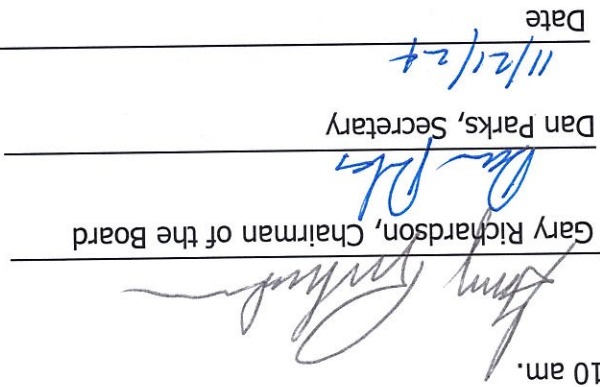 10 am.
Gary Richardson
Gary Richardson, Chairman of the Board
Dan Parks
Dan Parks, Secretary
11/21/24
Date